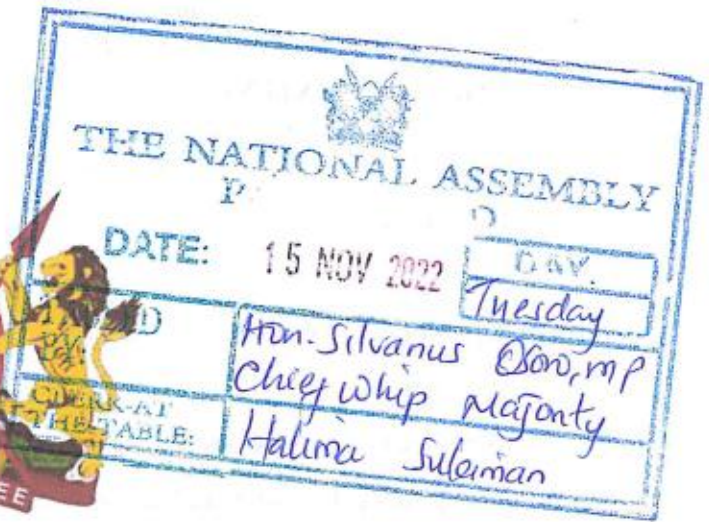 THE NATIONAL ASSEMBLY
DATE: 15 NOV 2022 DAY.
Tuesday
BY: Hon. Silvanus Osoro, MP
Chief Whip Majority
CLERK-AT
THE-TABLE: Halima Suleiman
EE